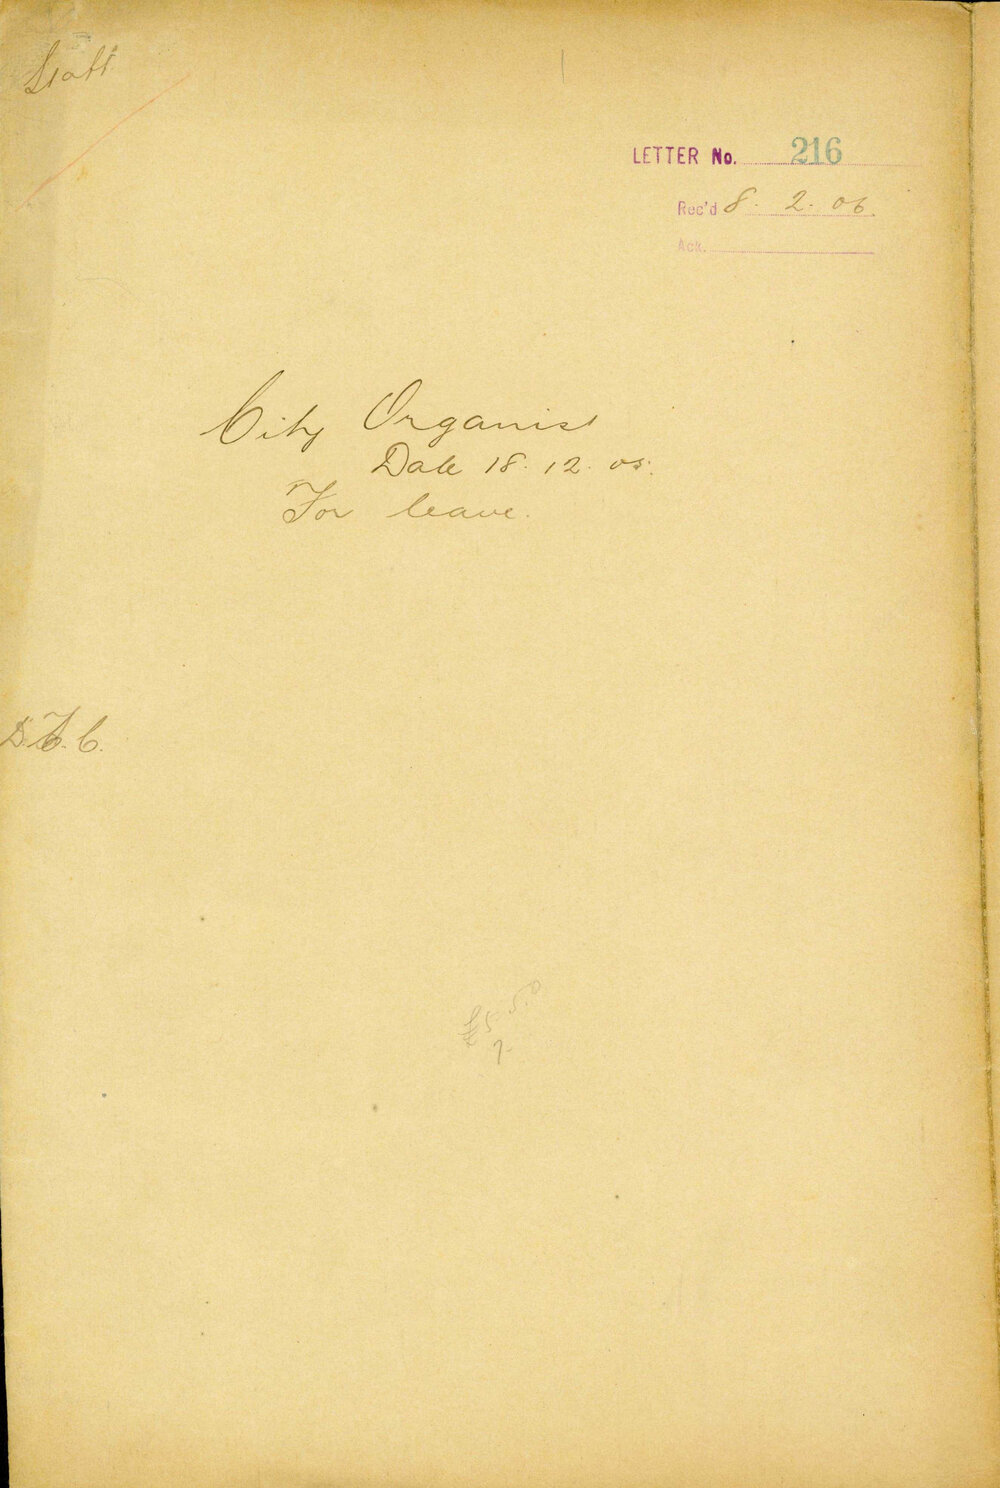 Staff
LETTER No. 216
Rec'd 8. 2. 06.
Ack.
City Organist
Date 18. 12. 05.
For leave.
£5 5.0